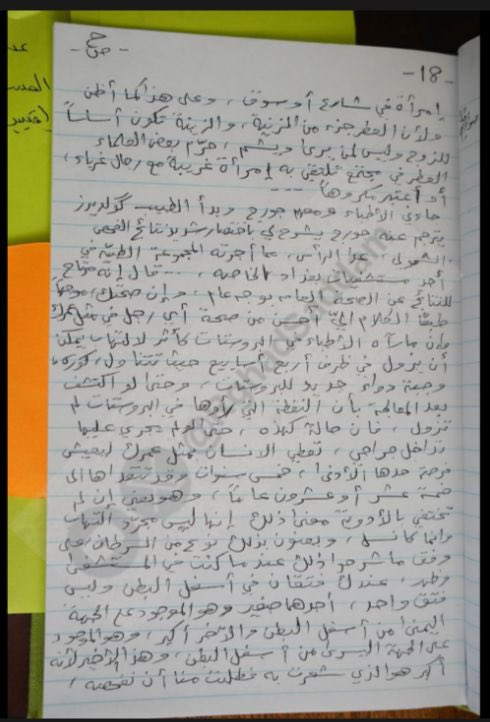 ح
ص
-18-
إمرأة في شارع أو سوق، وعلى هذا كما أظن
ولأن العطر جزء من الزينة، والزينة تكون أساساً
للزوج وليس لمن يرى ويشم، حرّم بعض العلماء
العطر في مجتمع تلتقي به إمرأة غريبة مع رجال غرباء،
أو أعتبر مكروهاً ...
جاءني الأطباء ومعهم جورج وبدأ الطبيب گولديبرز
يترجم عنه جورج يشرح لي باختصار شديد نتائج الفحص
الشعاعي على الرأس، مما أجرته المجموعة الطبية في
أحد مستشفيات بغداد الخاصة، ... قال إنه مرتاح
للنتائج عن الصحة العامة بوجه عام، وإن صحتك، موجهاً
طبعًا الكلام إليّ أحسن من صحة أي رجل في مثل عمرك
وإن ما رآه الأطباء في البروستات كأثر لالتهاب يمكن
أن يزول في ظرف أربع أسابيع حيث تتناول كورس،
وجبة دواء جديد للبروستات، وحتى لو اكتشف
بعد المعالجة بأن النقطة التي رأوها في البروستات لم
تزول، فإن حالة كهذه، حتى لو لم يجري عليها
تداخل جراحي، تعطي الانسان بمثل عمرك ليعيش
فرصة حدها الأدنى، خمس سنوات وقد تتعداها الى
خمسة عشر أو عشرون عاماً، وهو يعني إن لم
تختفي بالأدوية معنى ذلك إنها ليس مجرد التهاب
وانما كانسل، ويعنون بذلك نوع من السرطان على
وفق ما شرحوا ذلك عندما كنت في المستشفى
وظهر، عندك فتقان في أسفل البطن وليس
فتق واحد، أحدهما صغير وهو الموجود على الجهة
اليمنى من أسفل البطن والآخر أكبر، وهو الموجود
على الجهة اليسرى من أسفل البطن، وهذا الأخير لأنه
أكبر هو الذي شعرت به فطلبت منا أن نفحصه،